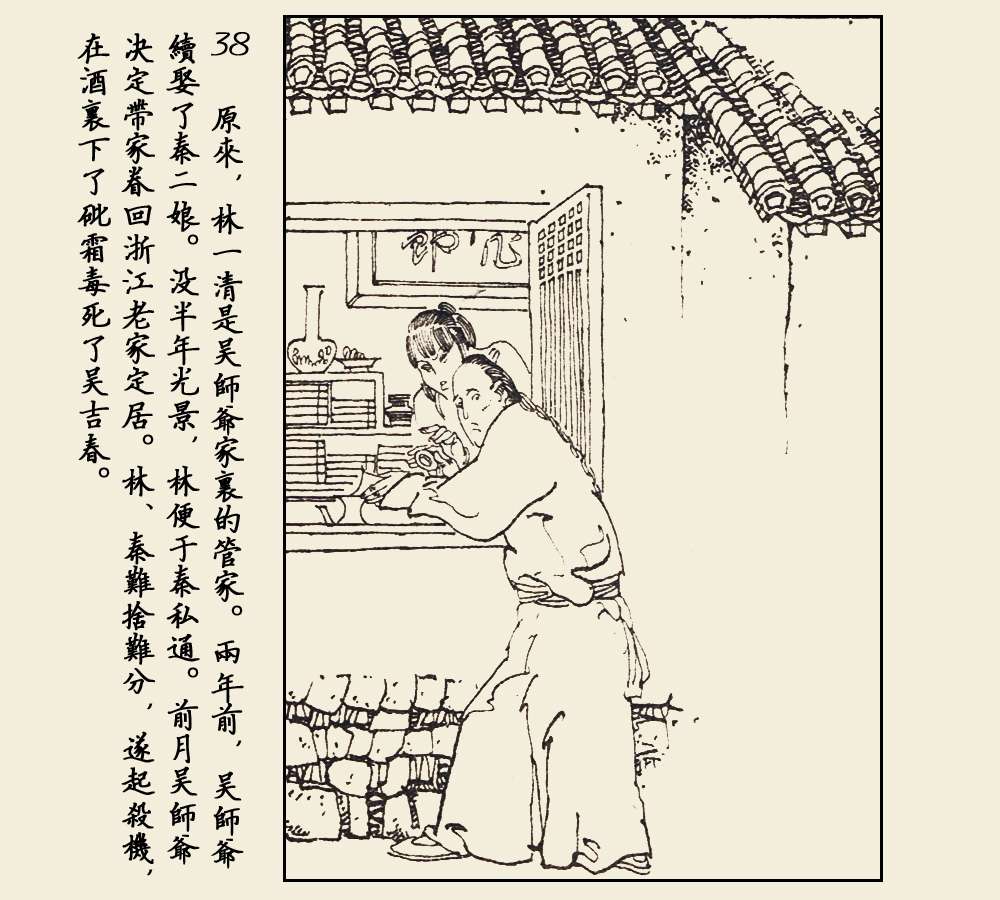 38
原來，林一清是吴師爺家裏的管家。兩年前，吴師爺
續娶了秦二娘。没半年光景，林便于秦私通。前月吴師爺
决定帶家眷回浙江老家定居。林、秦難捨難分，遂起殺機，
在酒裏下了砒霜毒死了吴吉春。